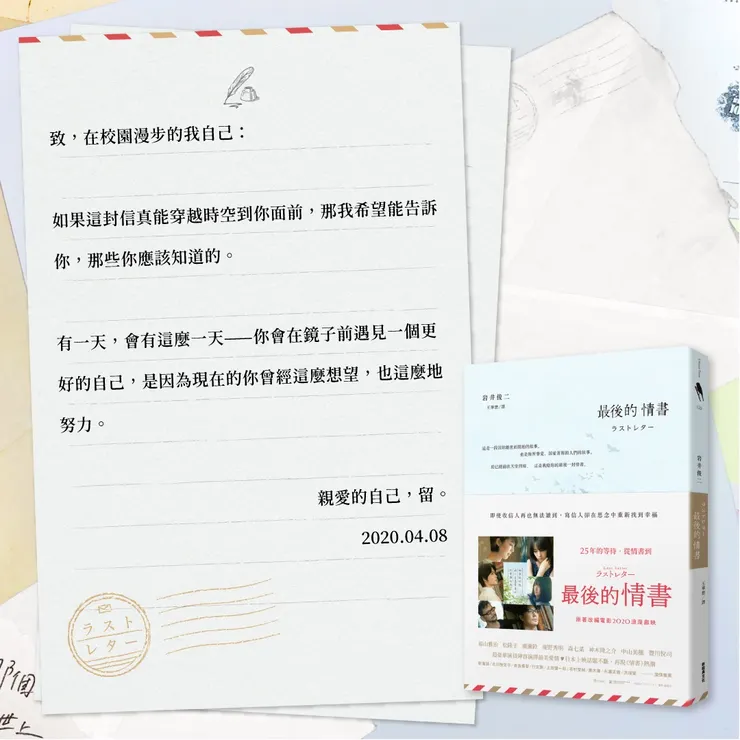 致，在校園漫步的我自己：
如果這封信真能穿越時空到你面前，那我希望能告訴
你，那些你應該知道的。
有一天，會有這麼一天——你會在鏡子前遇見一個更
好的自己，是因為現在的你曾經這麼想望，也這麼地
努力。
親愛的自己，留。
2020.04.08
ラスト
レター
那個
世上
岩井俊二
王華懋/譯
最後的情書
ラストレター
岩井俊二
ラストレター
最後的情書
王華懋 譯
即使收信人再也無法讀到，寫信人卻在思念中重新找到幸福
25年的等待，從情書到
ラストレター
最後的情書
原著改編電影2020浪漫獻映